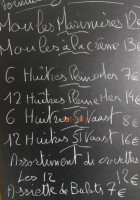 Moules Marinières 12
Moules à la crème 13
6 Huîtres 7€
12 Huîtres Mer 14€
6 Huîtres St Vaast 8€
12 Huîtres St Vaast 16€
Assortiment de
Les 12 12€
Assiette de Bulots 7€